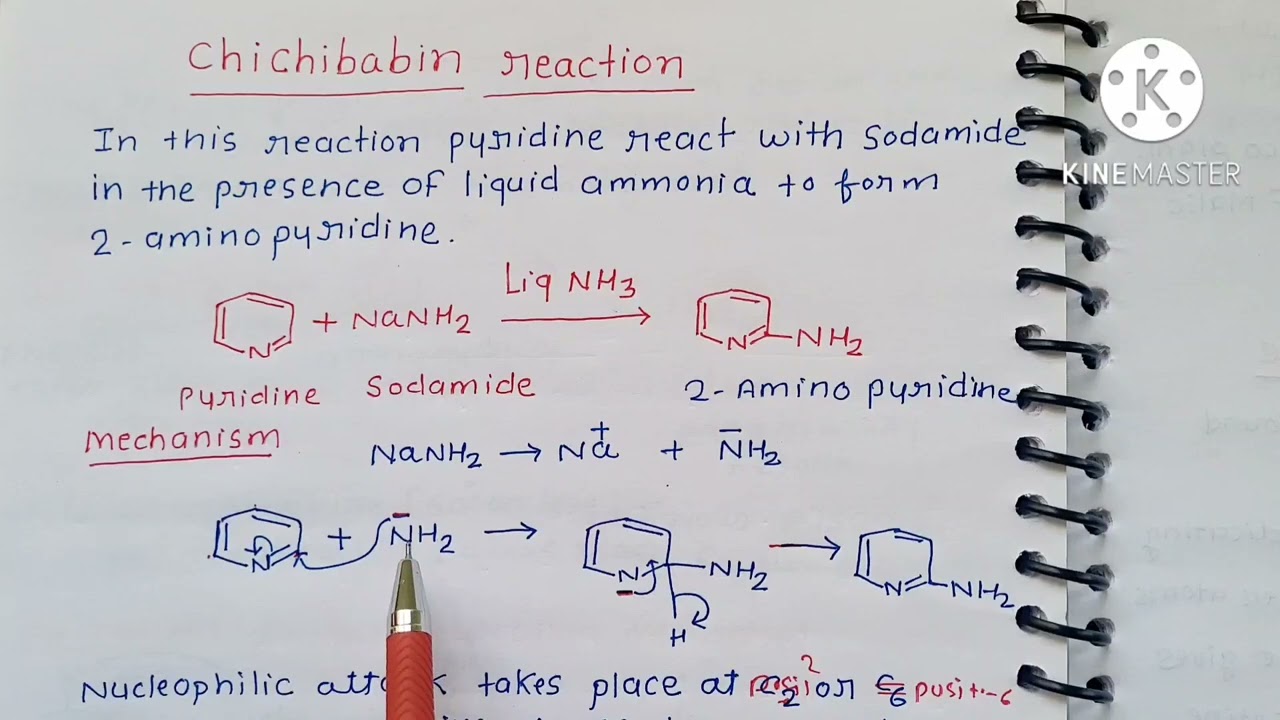 Chichibabin reaction
In this reaction pyridine react with Sodamide
in the presence of liquid ammonia to form
2-aminopyridine.
K
KINEMASTER
N + NaNH2 Liq NH3 N NH2
Pyridine Sodamide 2-Amino pyridine
Mechanism
NaNH2 → Na+ + N̄H2
N + N̄H2 → N NH2 → N NH2
H
Nucleophilic takes place at 2 or 6